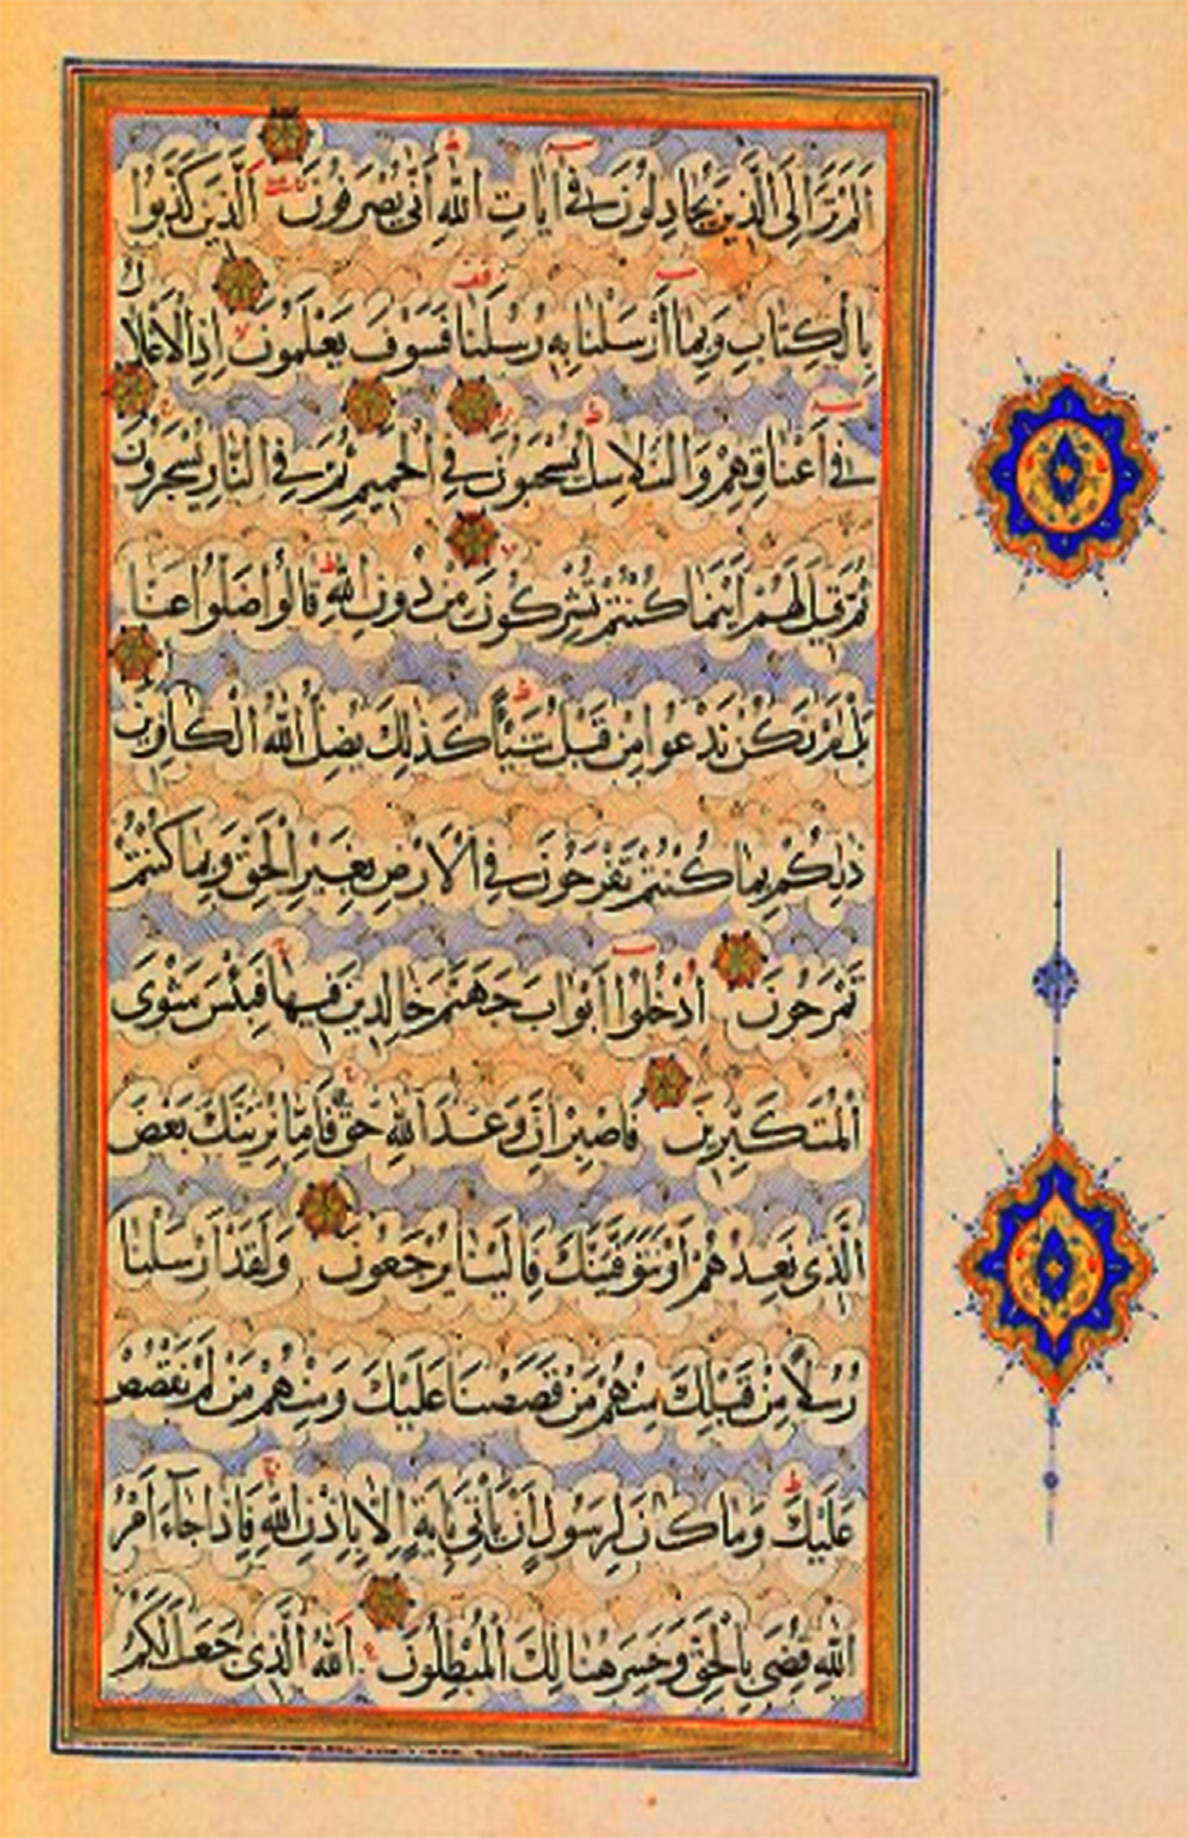 اَلَمْ تَرَ اِلَى الَّذينَ يُجَادِلُونَ في اٰيَاتِ اللهِ اَنّٰى يُصْرَفُونَ اَلَّذينَ كَذَّبُوا
بِالْكِتَابِ وَبِمَا اَرْسَلْنَا بِهِ رُسُلَنَا فَسَوْفَ يَعْلَمُونَ اِذِ الْاَغْلَالُ
في اَعْنَاقِهِمْ وَالسَّلَاسِلُ يُسْحَبُونَ فِي الْحَميمِ ثُمَّ فِي النَّارِ يُسْجَرُونَ
ثُمَّ قيلَ لَهُمْ اَيْنَمَا كُنْتُمْ تُشْرِكُونَ مِنْ دُونِ اللهِ قَالُوا ضَلُّوا عَنَّا
بَلْ لَمْ نَكُنْ نَدْعُوا مِنْ قَبْلُ شَيْئًا كَذٰلِكَ يُضِلُّ اللهُ الْكَافِرينَ
ذٰلِكُمْ بِمَا كُنْتُمْ تَفْرَحُونَ فِي الْاَرْضِ بِغَيْرِ الْحَقِّ وَبِمَا كُنْتُمْ
تَمْرَحُونَ اُدْخُلُوا اَبْوَابَ جَهَنَّمَ خَالِدينَ فيهَا فَبِئْسَ مَثْوَى
الْمُتَكَبِّرينَ فَاصْبِرْ اِنَّ وَعْدَ اللهِ حَقٌّ فَاِمَّا نُرِيَنَّكَ بَعْضَ
الَّذي نَعِدُهُمْ اَوْ نَتَوَفَّيَنَّكَ فَاِلَيْنَا يُرْجَعُونَ وَلَقَدْ اَرْسَلْنَا
رُسُلًا مِنْ قَبْلِكَ مِنْهُمْ مَنْ قَصَصْنَا عَلَيْكَ وَمِنْهُمْ مَنْ لَمْ نَقْصُصْ
عَلَيْكَ وَمَا كَانَ لِرَسُولٍ اَنْ يَأْتِيَ بِاٰيَةٍ اِلَّا بِاِذْنِ اللهِ فَاِذَا جَآءَ اَمْرُ
اللهِ قُضِيَ بِالْحَقِّ وَخَسِرَ هُنَالِكَ الْمُبْطِلُونَ اَللهُ الَّذي جَعَلَ لَكُمُ